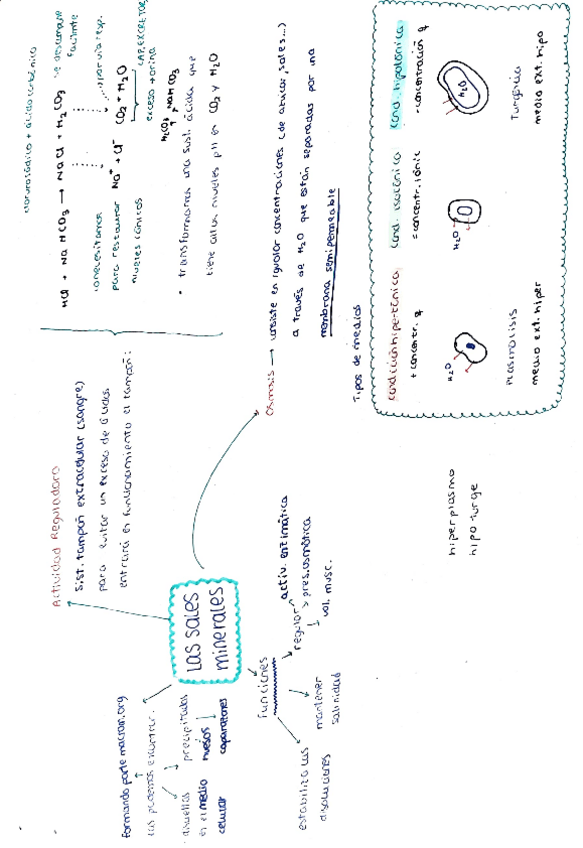 Las sales
minerales
formando parte macrom. org
Las podemos encontrar:
disueltas
en el medio
celular
precipitadas
huesos
caparazones
funciones
estabiliza las
disoluciones
mantener
salinidad
regular
activ. enzimática
pres. osmótica
vol. musc.
Actividad Reguladora
Sist. tampón extracelular (sangre)
para evitar un exceso de ácidos
entrará en funcionamiento el tampón:
cloruro sódico + ácido carbónico
HCl + NaHCO3 → NaCl + H2CO3 se descompone
fácilmente
lo necesitamos
para restaurar
niveles iónicos
Na+ + Cl-
CO2 + H2O
exceso → orina
H2CO3
NaHCO3
• transformamos una sust. ácida que
tiene altos niveles pH en CO2 y H2O
Osmosis → consiste en igualar concentraciones (de azúcar, sales...)
a través de H2O que están separadas por una
membrana semipermeable
Tipos de medios
condición hipertónica
+ concentr.
H2O
PLASMOLISIS
medio ext. hiper
cond. isotónica
= concentr. iónic
H2O
cond. hipotónica
- concentración
H2O
Turgencia
medio ext. hipo
hiperplasmo
hipoturge